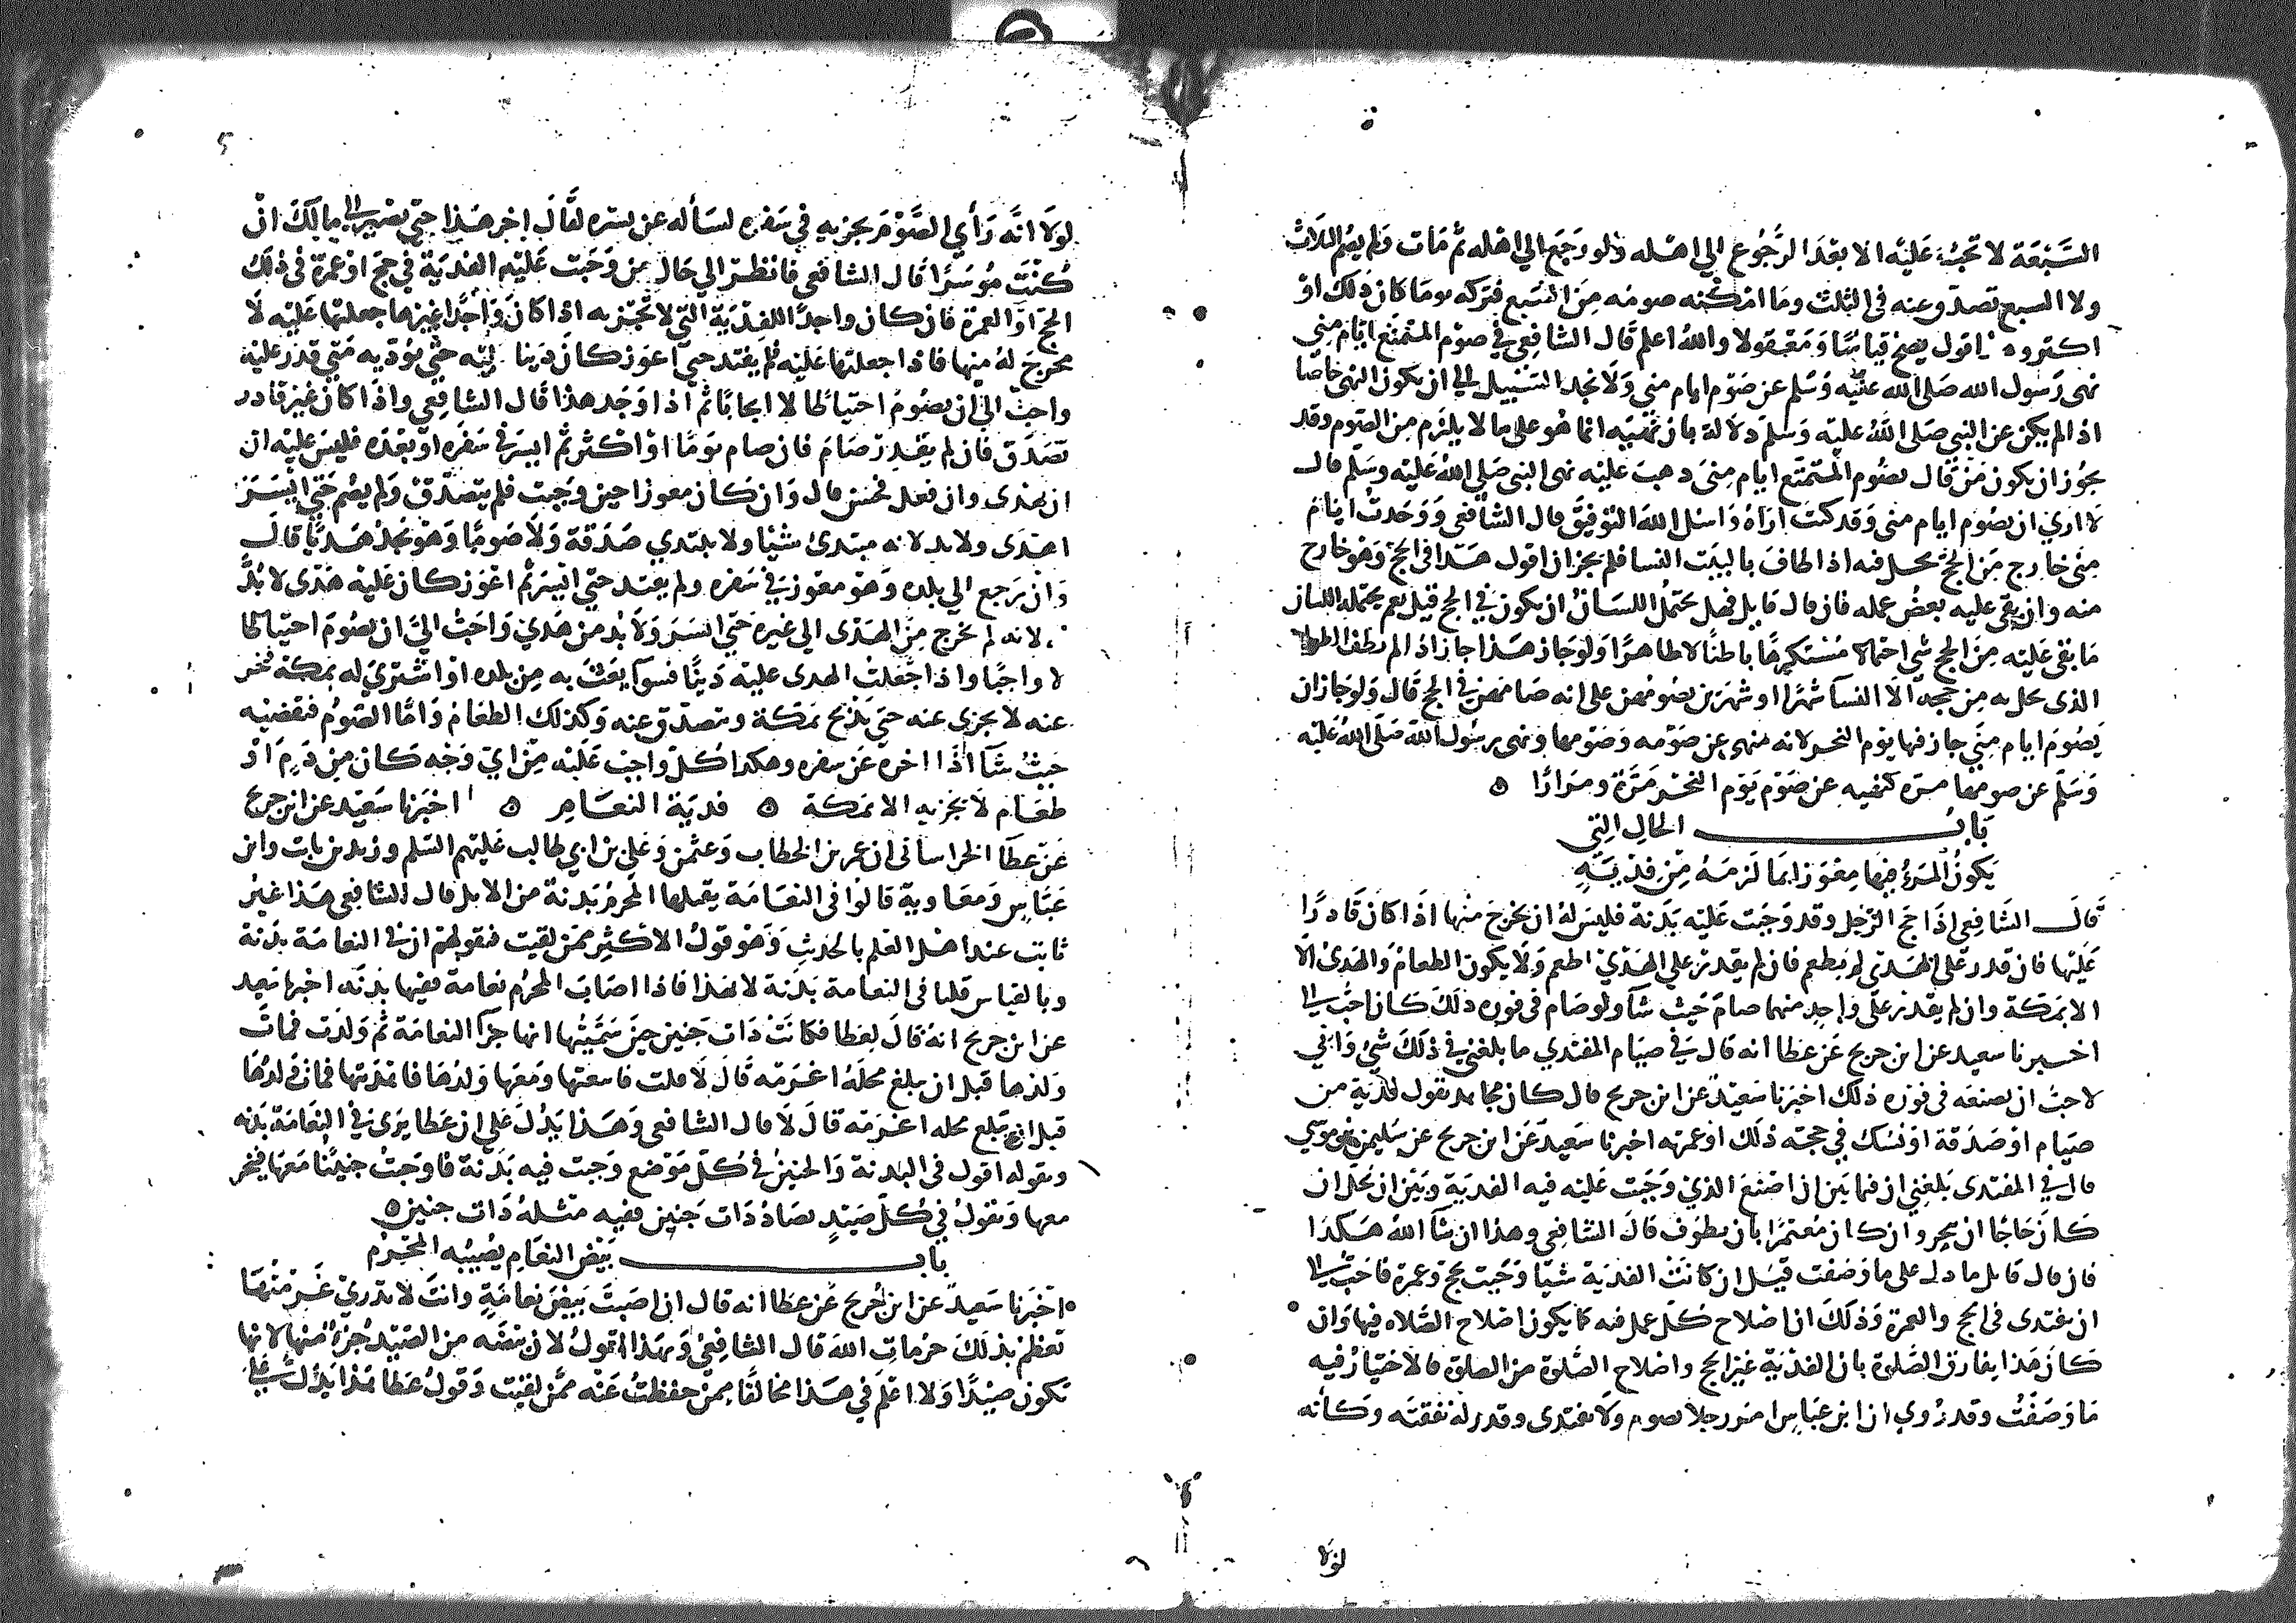 السبعة لا تجب عليه الا بعد الرجوع الي اهله ولو رجع الي اهله ثم مات ولم يصم الثلاث
ولا السبع تصدق عنه في الثلث وما امكنه صومه من السبع فتركه يوما كان ذلك او
اكثر وه اقول يصح قياسا ومعقولا والله اعلم قال الشافعي في صوم المتمتع ايام مني
نهى رسول الله صلى الله عليه وسلم عن صوم ايام منى ولا نجد السبيل الي ان يكون النهى خاصا
اذ الم يكن عن النبي صلى الله عليه وسلم دلالة بان نهيه انما هو على ما لا يلزم من الصوم وقد
يجوز ان يكون من قال يصوم المتمتع ايام منى ذهب عليه نهى النبى صلى الله عليه وسلم قال
لا اري ان يصوم ايام منى وقد كنت اراه واسل الله التوفيق قال الشافعي ووجدت ايام
منى خارج من الحج يحل فيه اذا طاف بالبيت النسا فلم يجز ان اقول هذا في الحج وهو خارج
منه وان بقى عليه بعض عمله فان قال قايل فهل يحتمل اللسان ان يكون في الحج قيل نعم يحتمله اللسان
ما بقى عليه من الحج شي احتمالا مستكرها باطنا لا ظاهرا ولو جاز هذا جاز اذ الم يطف الطواف
الذى يحل به من حجه الا النسا شهرا او شهرين يصومهن على انه صامهن في الحج قال ولو جاز ان
يصوم ايام منى جاز فيها يوم النحر لانه منهى عن صومه وصومها ونهى رسول الله صلى الله عليه
وسلم عن صومها مرة كنهيه عن صوم يوم النحر مرة ومرارا ه
باب الحال التي
يكون المرء فيها معوزا بما لزمه من فديته
قال الشافعي اذا حج الرجل وقد وجبت عليه بدنة فليس له ان يخرج منها اذا كان قادرا
عليها فان قدر على الهدى لم يطعم فان لم يقدر علي الهدي اطعم ولا يكون الطعام والهدى الا
الا بمكة وان لم يقدر على واحد منهما صام حيث شا ولو صام في فوره ذلك كان احب الي
اخبرنا سعيد عن ابن جريج عن عطا انه قال في صيام المفتدي ما بلغني في ذلك شي واني
لاحب ان يصنعه في فوره ذلك اخبرنا سعيد عن ابن جريج قال كان مجاهد يقول فدية من
صيام او صدقة او نسك في حجته ذلك او عمرته اخبرنا سعيد عن ابن جريج عن سليمن بن موسي
قال في المفتدى بلغني ان فيما بين ان اصنع الذي وجبت عليه فيه الفدية وبين ان يحل ان
كان حاجا ان ينحر وان كان معتمرا بان يطوف قال الشافعي وهذا ان شا الله هكذا
فان قال قايل ما دل على ما وصفت قيل ان كانت الفدية شيا وجبت بحج وعمرة فاحب الي
ان يفتدى في الحج والعمرة وذلك ان اصلاح كل عمل فيه كما يكون اصلاح الصلاه فيها وان
كان هذا يفارق الصلوة بان الفدية غير الحج واصلاح الصلوة من الصلوة فالاختيار فيه
ما وصفت وقد روي ان ابن عباس امر رجلا يصوم ولا يفتدى وقدر له نفقته وكانه
لولا
لولا انه راي الصوم يجزيه في سفره لساله عن يسره لقال اخر هذا حتى يصير الي مالك ان
كنت موسرا قال الشافعي فانظر الي حال من وجبت عليه الفدية في حج او عمرة في ذلك
الحج او العمرة فان كان واجدا للفدية التي لا تجزيه اذا كان واجدا غيرها جعلتها عليه لا
مخرج له منها فاذا جعلتها عليه فلم يفتد حتى اعوز كان دينا عليه حتى يؤديه متى قدر عليه
واحب الي ان يصوم احتياطا لا ايجابا ثم اذا وجد هذا قال الشافعي واذا كان غير قادر
تصدق فان لم يقدر صام فان صام يوما او اكثر ثم ايسر في سفره او بعده فليس عليه ان
ان يهدى وان فعل فحسن قال وان كان معوزا حين وجبت فلم يتصدق ولم يصم حتى ايسر
اهدى ولا بد لانه مبتدئ شيا ولا يبتدي صدقة ولا صوما وهو يجد هديا قال
وان رجع الي بلده وهو معوز في سفره ولم يفتد حتى ايسر ثم اعوز كان عليه هدى لا بد
لانه لم يخرج من الهدى الي غيره حتى ايسر ولا بد من هدي واحب الي ان يصوم احتياطا
لا واجبا واذا جعلت الهدى عليه دينا فسوا بعث به من بلده او اشترى له بمكة فنحر
عنه لا يجزى عنه حتى يذبح بمكة ويتصدق عنه وكذلك الطعام واما الصوم فيقضيه
حيث شا اذا اخره عن سفره وهكذا كل واجب عليه من اي وجه كان من دم او
طعام لا يجزيه الا بمكة ه فدية النعام ه اخبرنا سعيد عن ابن جريج
عن عطا الخراساني ان عمر بن الخطاب وعثمن وعلي بن ابي طالب عليهم السلم وزيد بن ثابت وابن
عباس ومعاوية قالوا في النعامة يقتلها المحرم بدنة من الابل قال الشافعي هذا غير
ثابت عند اهل العلم بالحديث وهو قول الاكثر ممن لقيت فبقولهم ان في النعامة بدنة
وبالقياس قلنا في النعامة بدنة لا بهذا فاذا اصاب المحرم نعامة ففيها بدنة اخبرنا سعيد
عن ابن جريج انه قال لعطا فكانت ذات جنين حين سميتها انها جزا النعامة ثم ولدت فمات
ولدها قبل ان يبلغ محله اغرمه قال لا قلت فابتعتها ومعها ولدها فاهديتها فمات ولدها
قبل ان يبلغ محله اغرمه قال لا قال الشافعي وهذا يدل على ان عطا يرى في النعامة بدنه
وبقوله اقول في البدنة والجنين في كل موضع وجبت فيه بدنة فاوجبت جنينا معها فينحر
معها ونقول في كل صيد يصاد ذات جنين ففيه مثله ذات جنين ه
باب بيض النعام يصيبه المحرم
اخبرنا سعيد عن ابن جريج عن عطا انه قال ان اصبت بيض نعامة وانت لا تدري غرمتها
تعظم بذلك حرمات الله قال الشافعي وبهذا اقول لان بيضه من الصيد جزء منها لانها
تكون صيدا ولا اعلم في هذا مخالفا ممن حفظت عنه ممن لقيت وقول عطا هذا يدل على